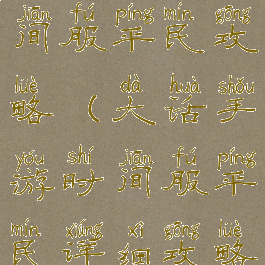 jiān fú píng mín gōng
间服平民攻
lüè dà huà shǒu
略(大话手
yóu shí jiān fú píng
游时间服平
mín xiáng xì gōng lüè
民详细攻略